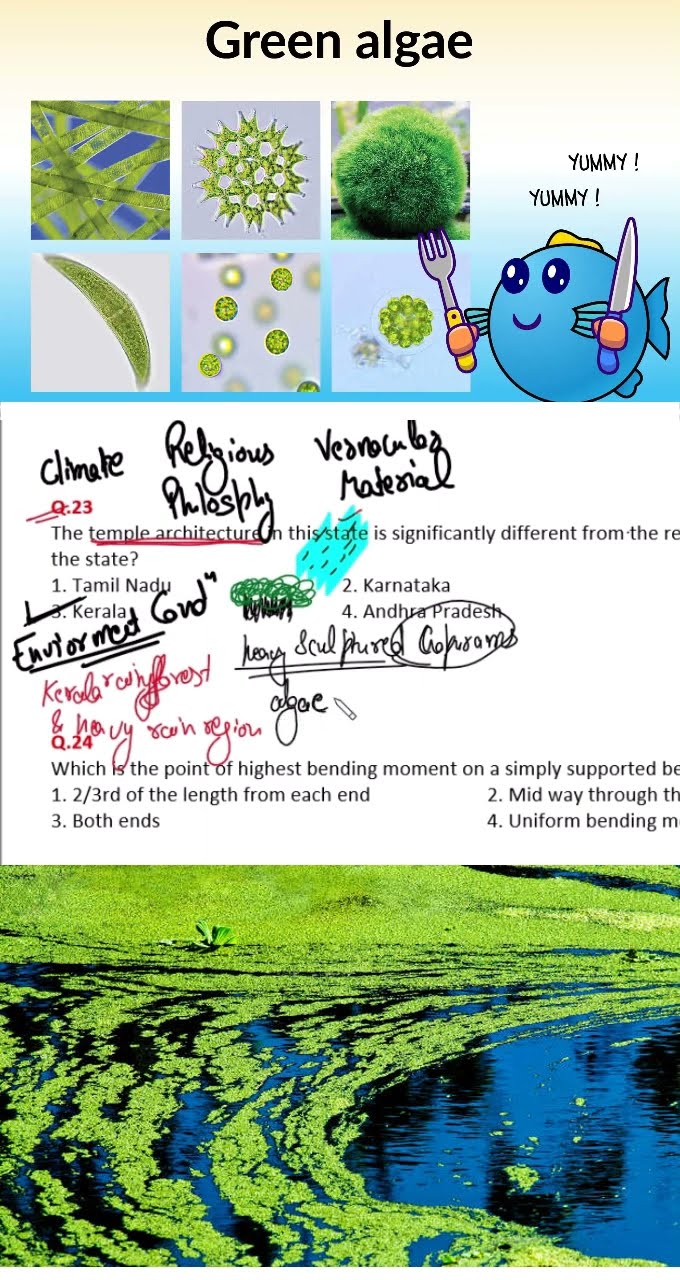 Green algae
YUMMY !
YUMMY !
Climate
Religious
Philosphy
Vernacular
Material
Q.23
The temple architecture in this state is significantly different from the re
the state?
1. Tamil Nadu
2. Karnataka
3. Kerala
4. Andhra Pradesh
Enviorment Cond"
heavy Sculptured Gopurams
Kerala rainforest
& heavy rain region
algae
Q.24
Which is the point of highest bending moment on a simply supported be
1. 2/3rd of the length from each end
2. Mid way through th
3. Both ends
4. Uniform bending m